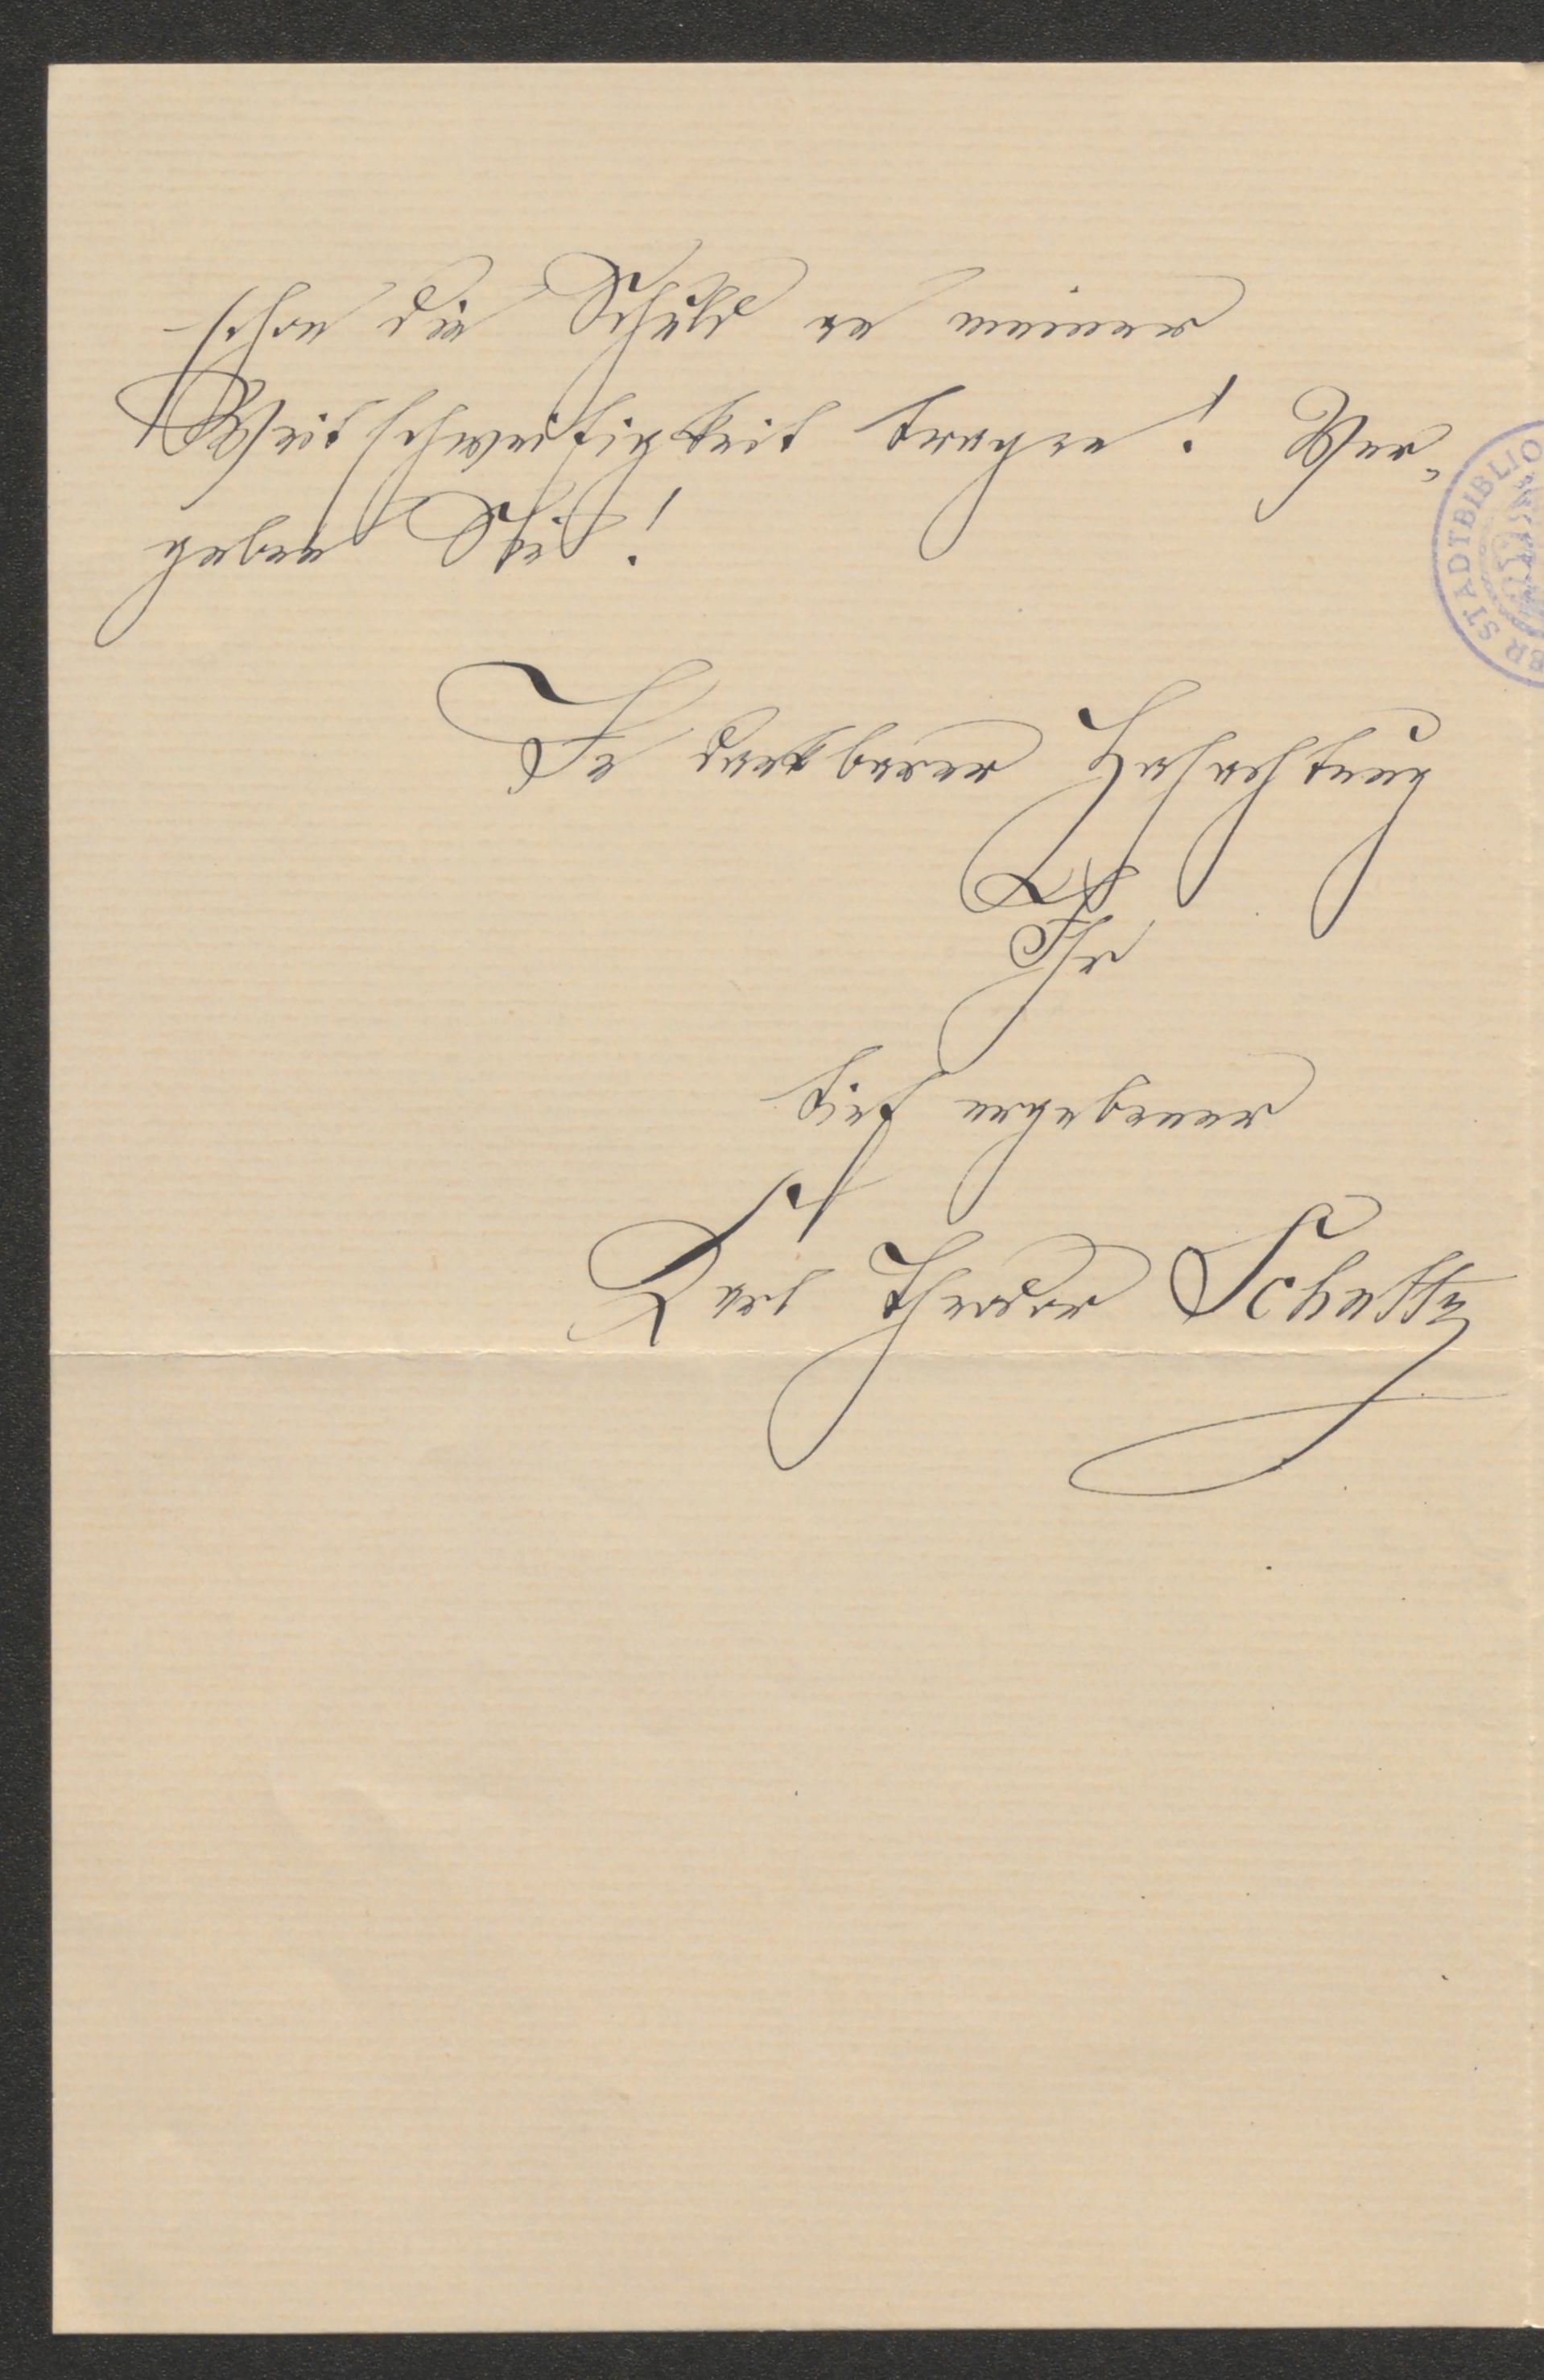 schon die Schuld an meiner
Weitschweifigkeit tragen! Ver-
geben Sie!
In dankbarer Hochachtung
Ihr
tief ergebener
Karl Theodor Schultz
STADTBIBLIO